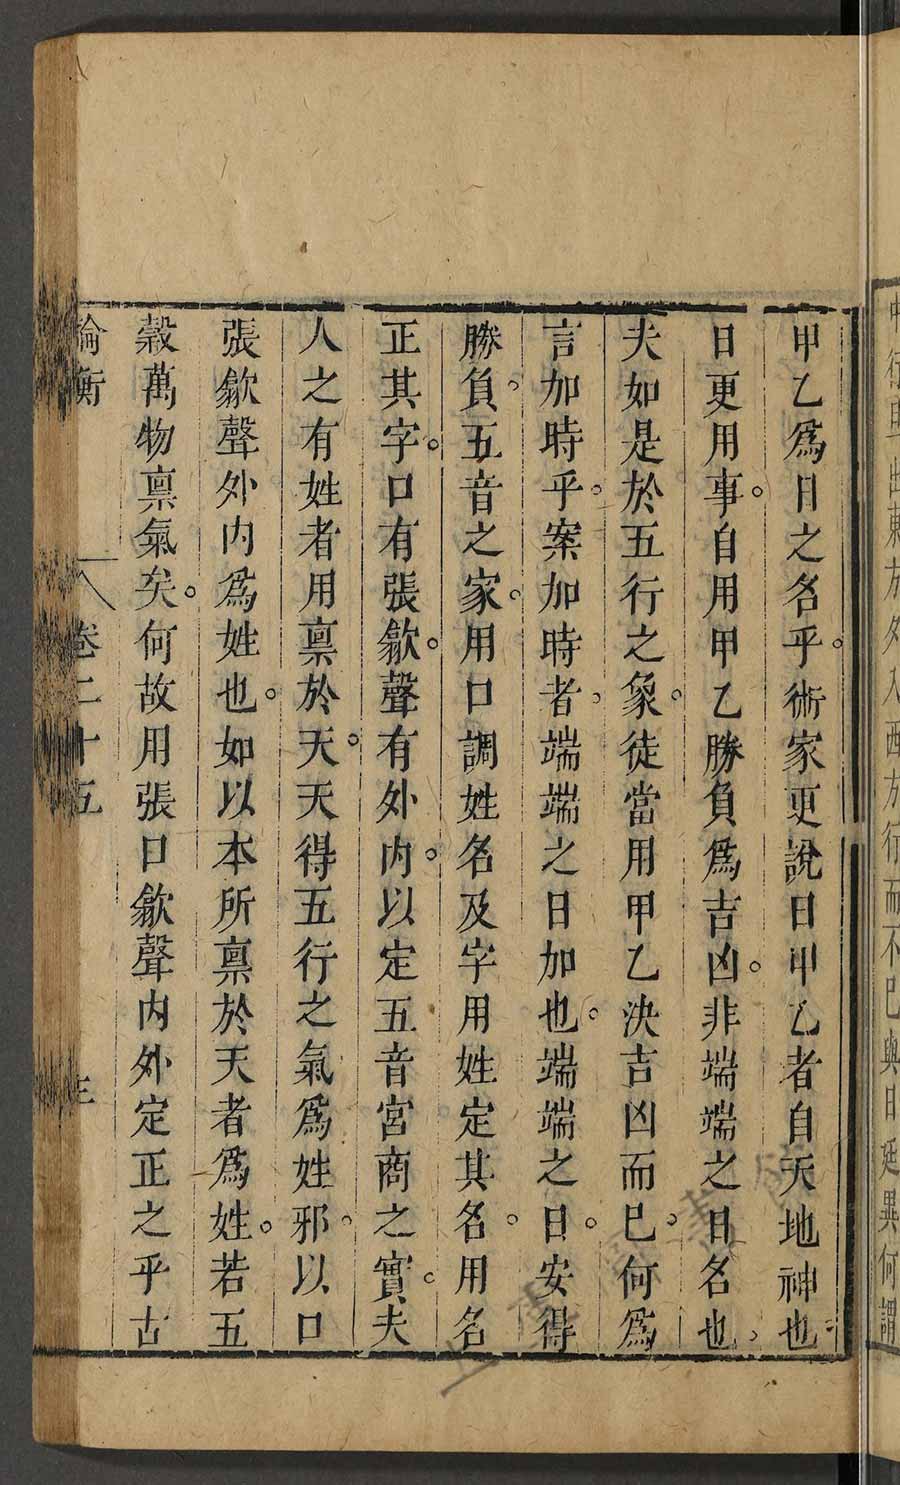 中行與出東方夕入西方行而不已與日廷異何謂
甲乙爲日之名乎術家更說日甲乙者自天地神也
日更用事自用甲乙勝負爲吉凶非端端之日名也
夫如是於五行之象徒當用甲乙決吉凶而已何爲
言加時乎案加時者端端之日加也端端之日安得
勝負五音之家用口調姓名及字用姓定其名用名
正其字口有張歙聲有外內以定五音宮商之實夫
人之有姓者用禀於天天得五行之氣爲姓邪以口
張歙聲外內爲姓也如以本所禀於天者爲姓若五
穀萬物禀氣矣何故用張口歙聲內外定正之乎古
論衡 卷二十五 三